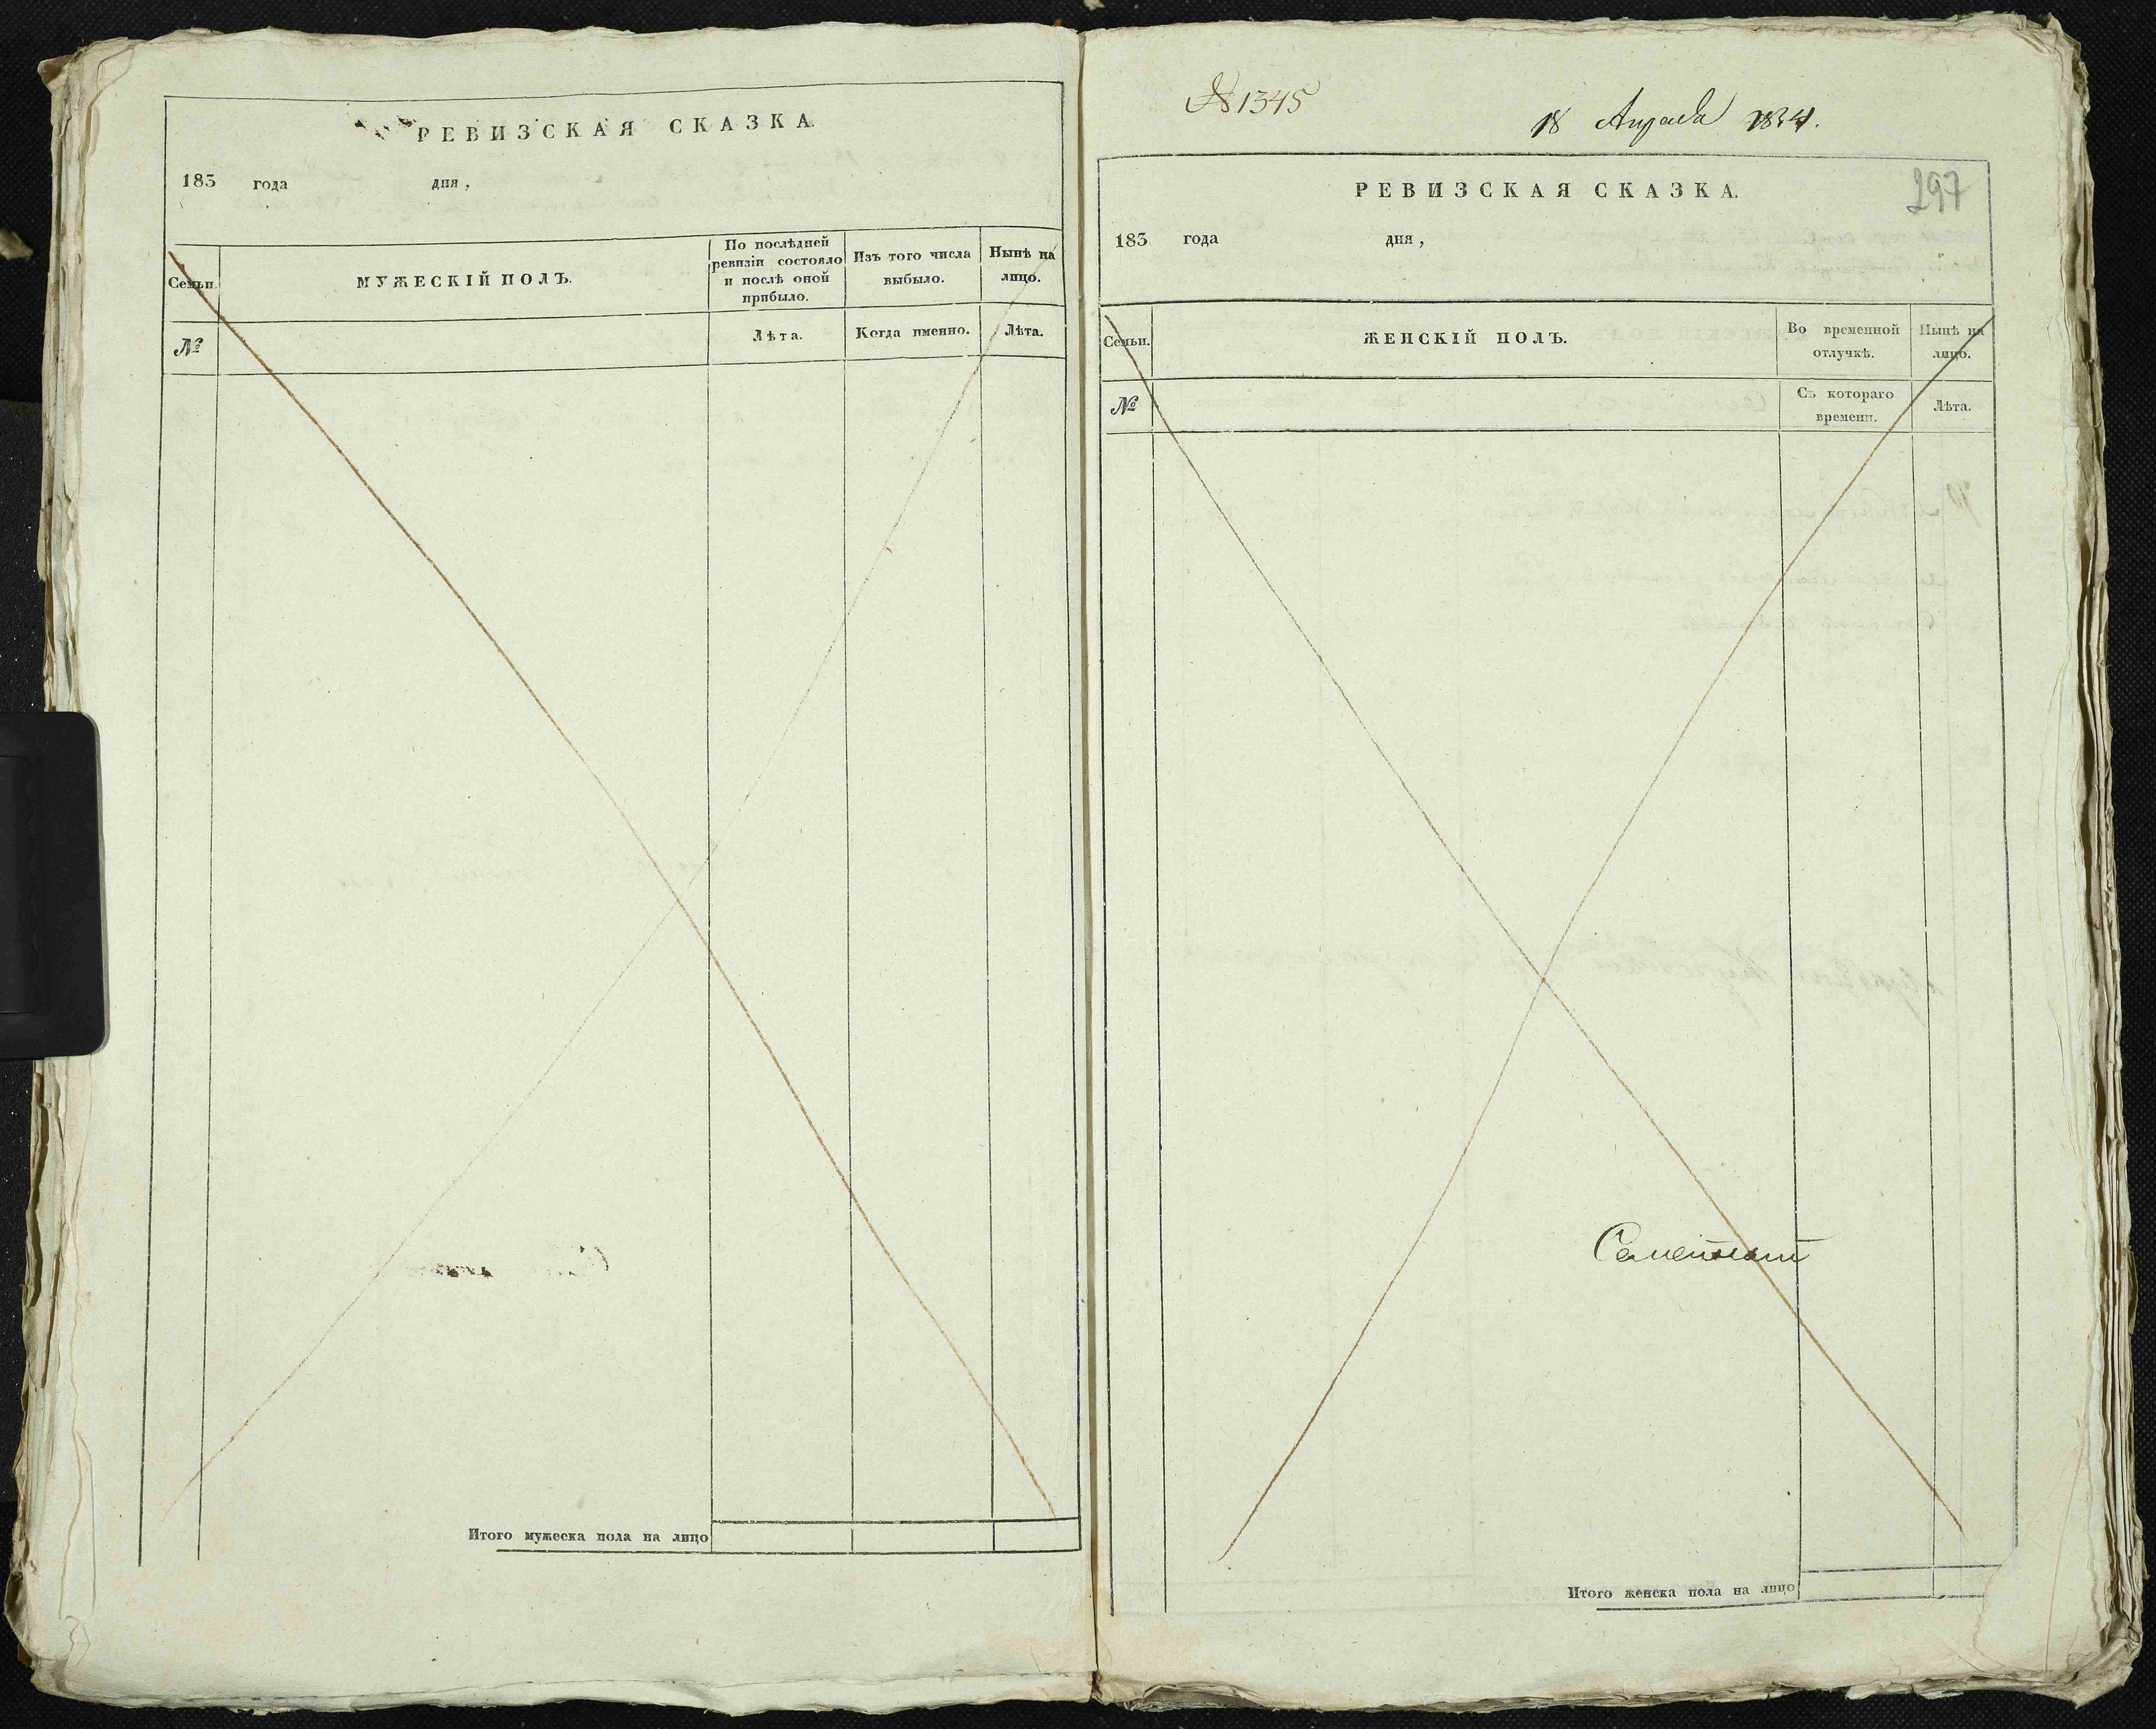 РЕВИЗСКАЯ СКАЗКА.
183 года дня,
Семьи.
МУЖЕСКІЙ ПОЛЪ.
По послѣдней ревизіи состояло и послѣ оной прибыло.
Изъ того числа выбыло.
Нынѣ на лицо.
№
Лѣта.
Когда именно.
Лѣта.
Итого мужеска пола на лицо
№ 1345
18 Апреля 1834.
297
РЕВИЗСКАЯ СКАЗКА.
183 года дня,
Семьи.
ЖЕНСКІЙ ПОЛЪ.
Во временной отлучкѣ.
Нынѣ на лицо.
№
Съ котораго времени.
Лѣта.
Итого женска пола на лицо